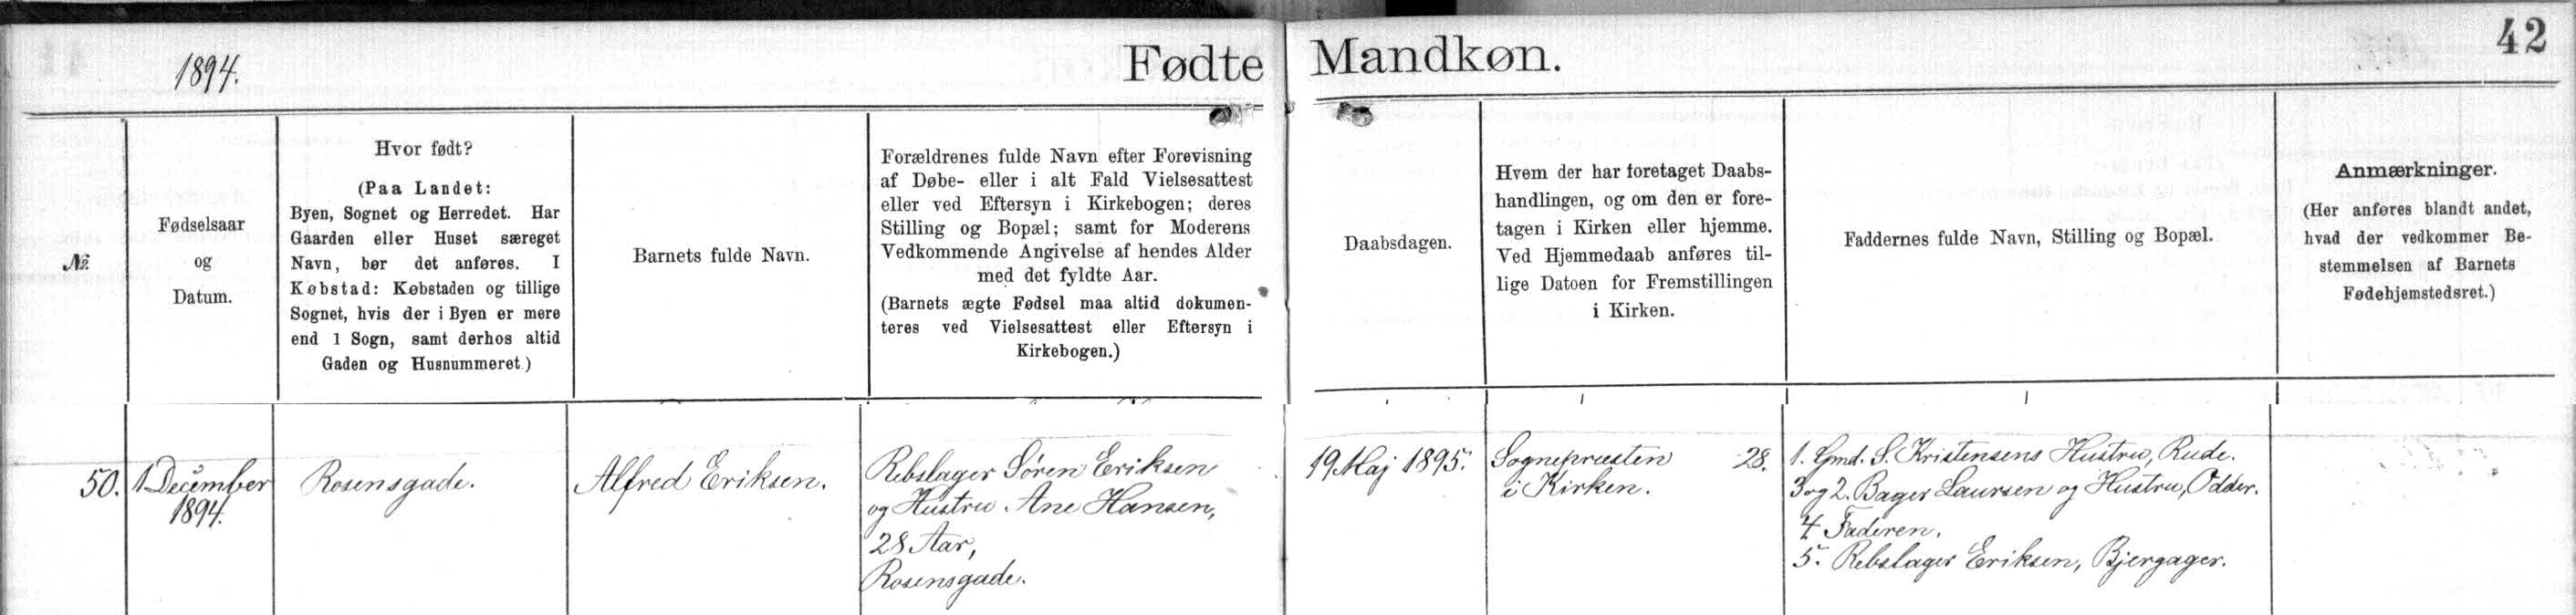 1894.
Fødte Mandkøn.
42
№
Fødselsaar
og
Datum.
Hvor født?
(Paa Landet:
Byen, Sognet og Herredet. Har
Gaarden eller Huset særeget
Navn, bør det anføres. I
Købstad: Købstaden og tillige
Sognet, hvis der i Byen er mere
end 1 Sogn, samt derhos altid
Gaden og Husnummeret.)
Barnets fulde Navn.
Forældrenes fulde Navn efter Forevisning
af Døbe- eller i alt Fald Vielsesattest
eller ved Eftersyn i Kirkebogen; deres
Stilling og Bopæl; samt for Moderens
Vedkommende Angivelse af hendes Alder
med det fyldte Aar.
(Barnets ægte Fødsel maa altid dokumen-
teres ved Vielsesattest eller Eftersyn i
Kirkebogen.)
Daabsdagen.
Hvem der har foretaget Daabs-
handlingen, og om den er fore-
tagen i Kirken eller hjemme.
Ved Hjemmedaab anføres til-
lige Datoen for Fremstillingen
i Kirken.
Faddernes fulde Navn, Stilling og Bopæl.
Anmærkninger.
(Her anføres blandt andet,
hvad der vedkommer Be-
stemmelsen af Barnets
Fødehjemstedsret.)
50.
1 December
1894.
Rosensgade.
Alfred Eriksen.
Rebslager Søren Eriksen
og Hustru Ane Hansen,
28 Aar,
Rosensgade.
19 Maj 1895.
Sognepræsten 28.
i Kirken.
1. Gmd. S. Kristensens Hustru, Rude.
3 og 2. Bager Laursen og Hustru, Odder.
4 Faderen.
5. Rebslager Eriksen, Bjergager.